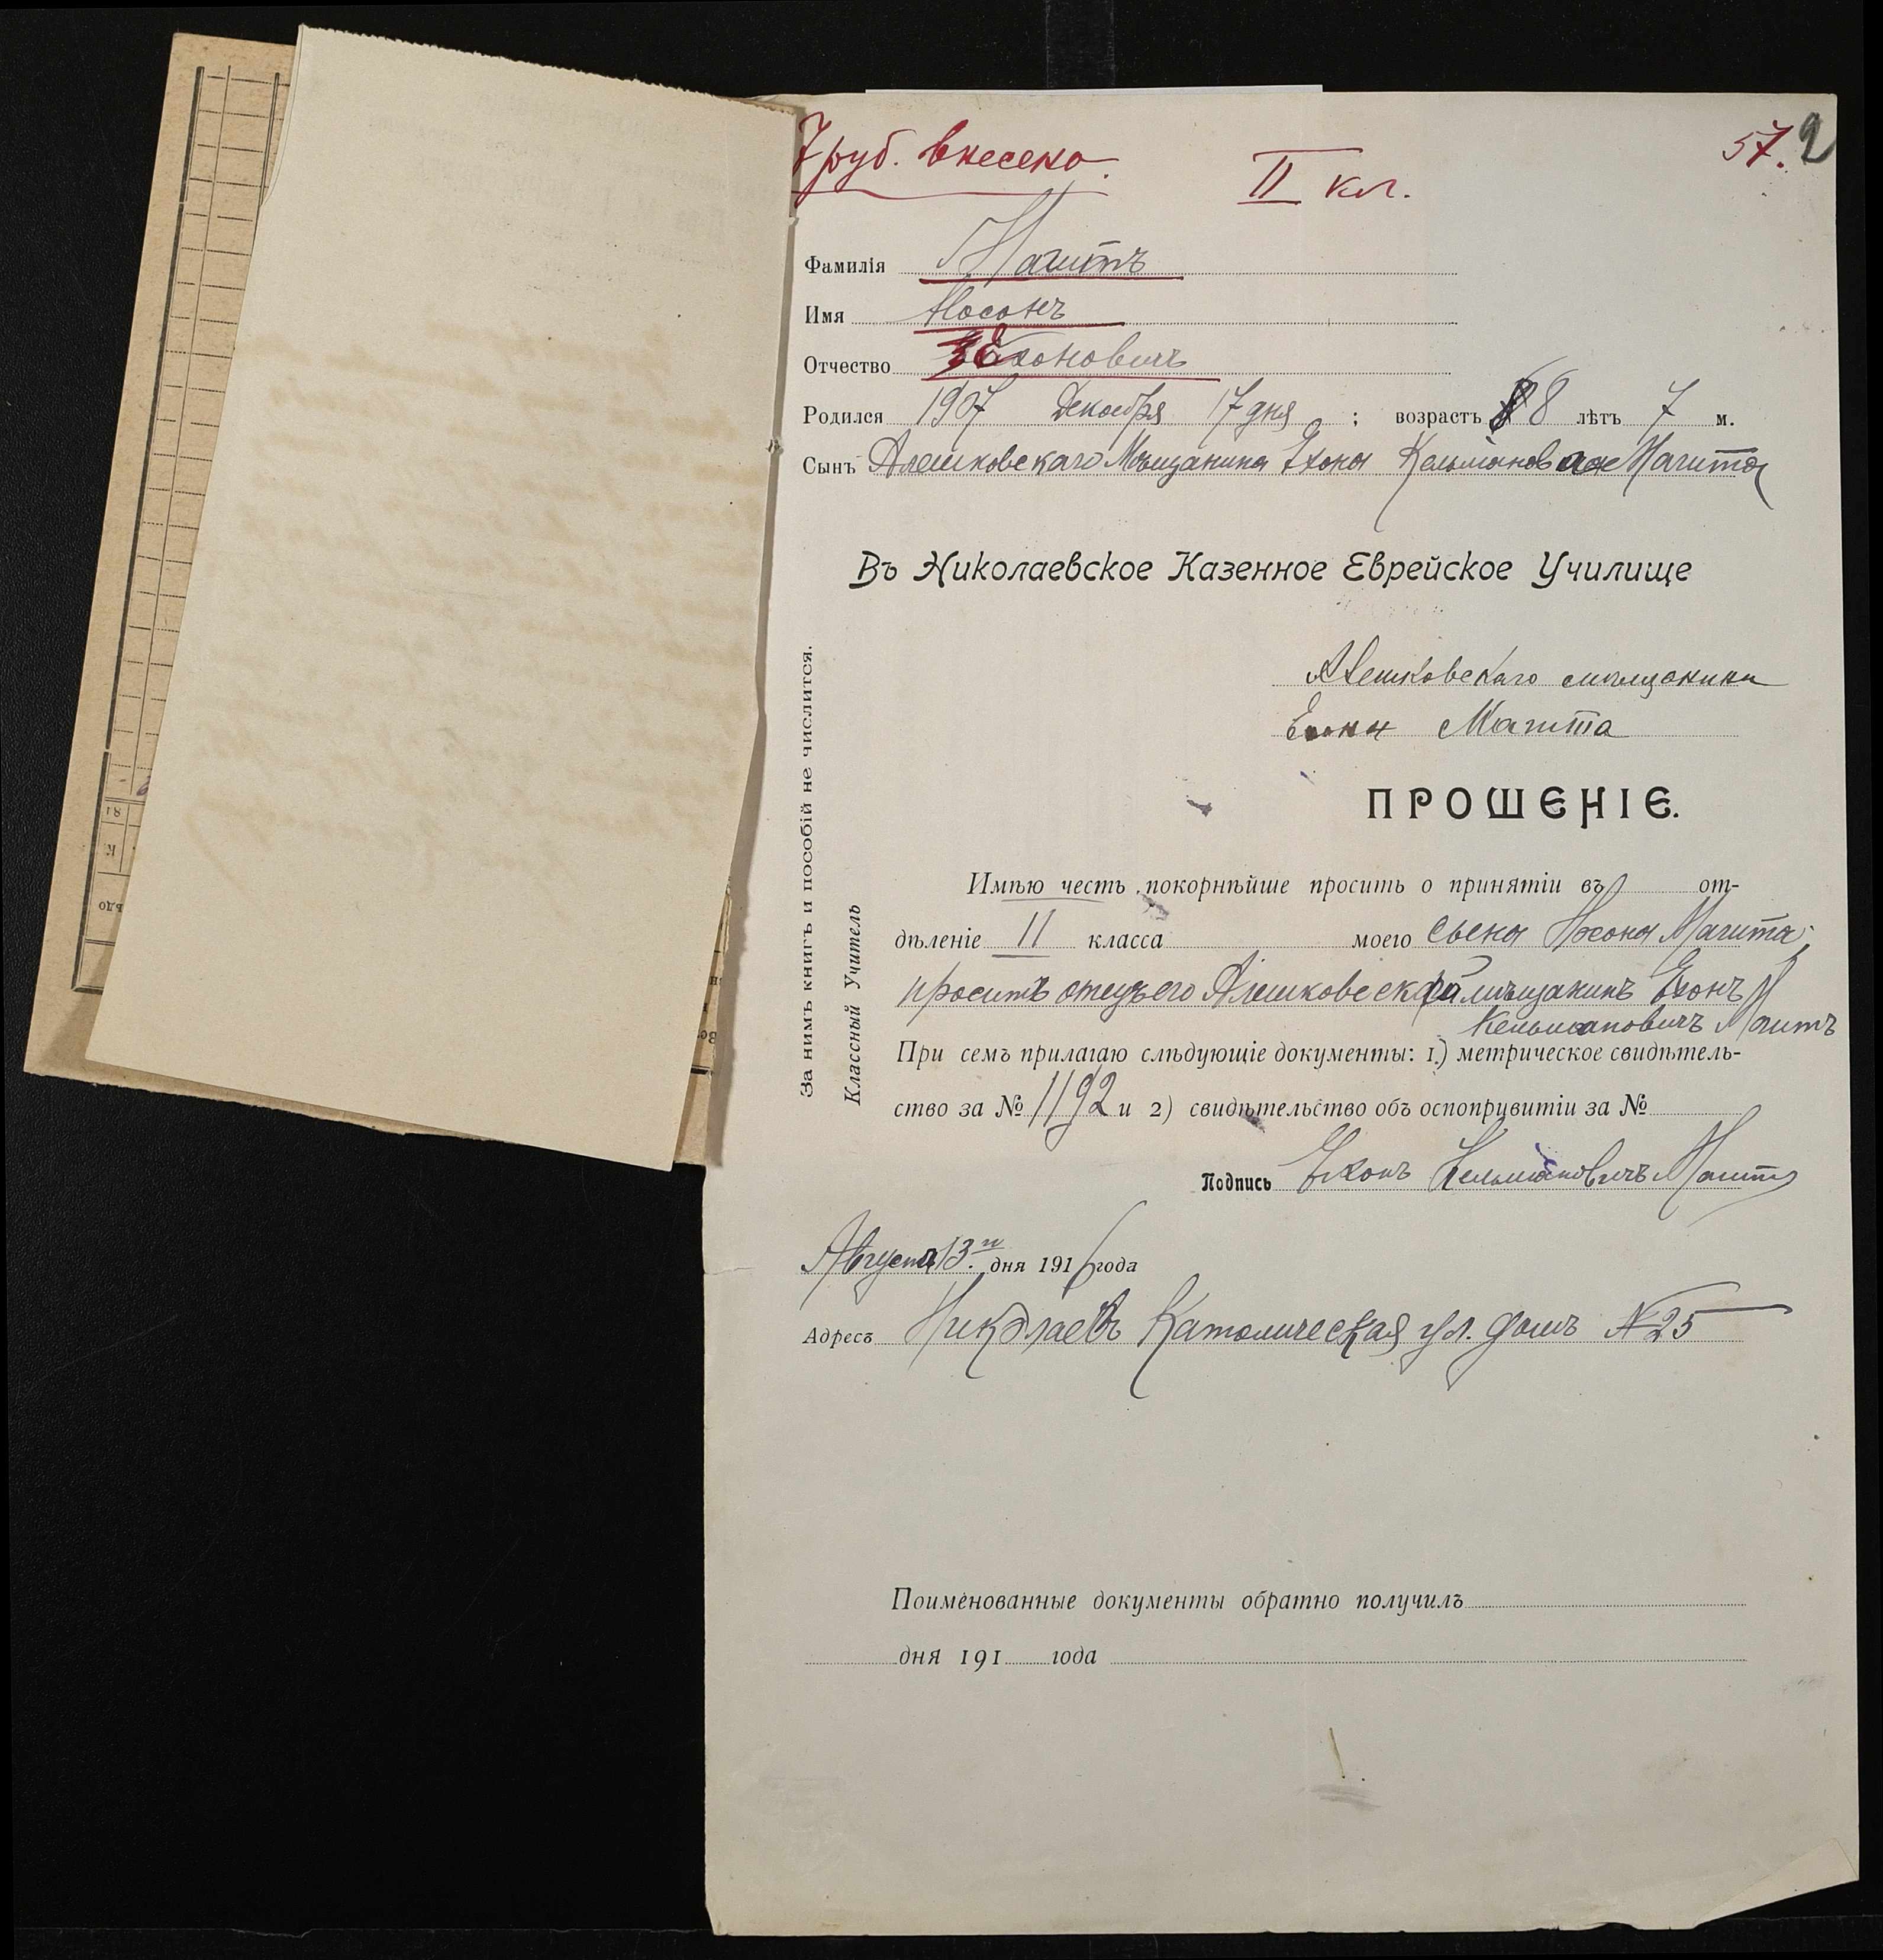 7 руб. внесено.
II кл.
57. 2
Фамилія Магитъ
Имя Носонъ
Отчество Ехоновичъ
Родился 1907 Декабря 17 дня ; возрастъ 8 лѣтъ 7 м.
Сынъ Алешковскаго Мѣщанина Ехоны Кельманова Магита
Въ Николаевское Казенное Еврейское Училище
Алешковскаго мѣщанина
Ехоны Магита
ПРОШЕНІЕ.
Имѣю честь покорнѣйше просить о принятіи въ от-
дѣленіе II класса моего сына Носона Магита,
проситъ отецъ его Алешковскій мѣщанинъ Ехонъ
Кельмановичъ Магитъ
При семъ прилагаю слѣдующіе документы: 1.) метрическое свидѣтель-
ство за № 1192 и 2) свидѣтельство объ оспопривитіи за №
Подпись Ехонъ Кельмановичъ Магитъ
Августа 13го дня 1916 года
Адресъ Николаевъ Католическая ул. домъ № 25
Поименованные документы обратно получилъ
дня 191 года
За нимъ книгъ и пособій не числится.
Классный Учитель